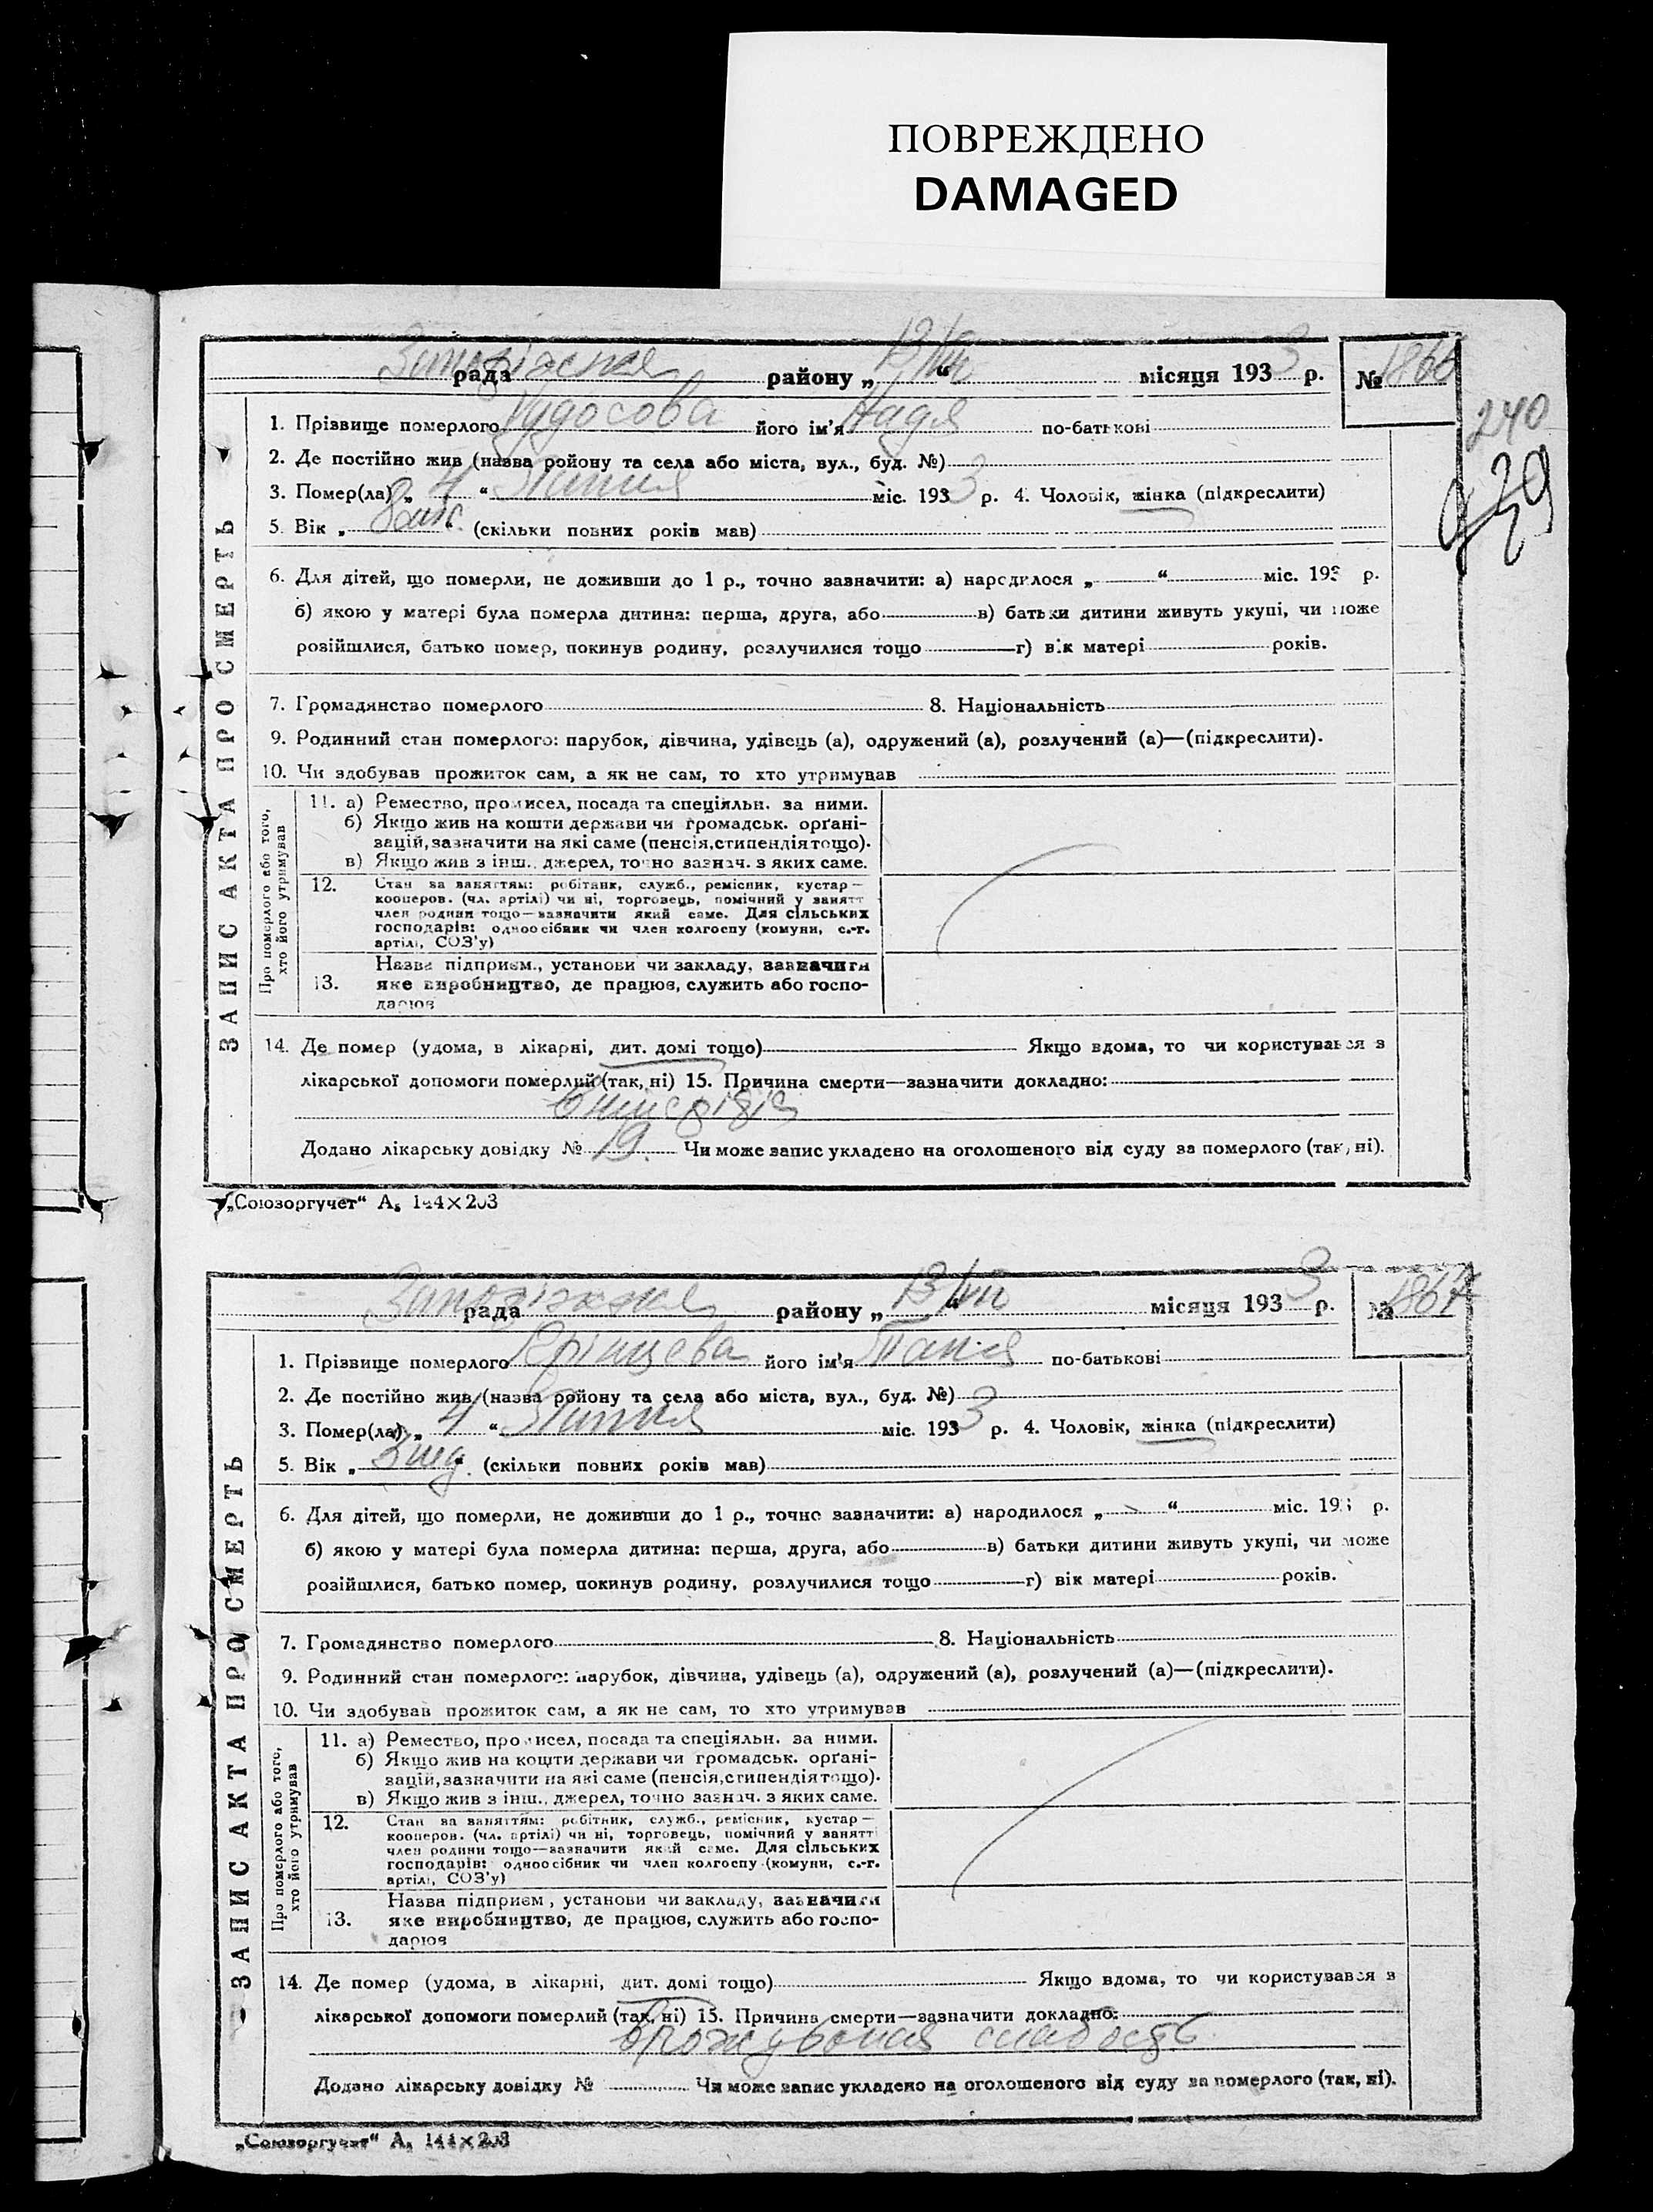 ПОВРЕЖДЕНО
DAMAGED
Запорізька рада району „13/VIII“ місяця 1933 р. № 1866
240
239
ЗАПИС АКТА ПРО СМЕРТЬ
1. Прізвище померлого його ім'я Надя по-батькові
2. Де постійно жив (назва ройону та села або міста, вул., буд. №)
3. Помер(ла) „4“ Липня міс. 1933 р. 4. Чоловік, жінка (підкреслити)
5. Вік „ “ (скільки повних років мав)
6. Для дітей, що померли, не доживши до 1 р., точно зазначити: а) народилося „ “ міс. 193 р.
б) якою у матері була померла дитина: перша, друга, або в) батьки дитини живуть укупі, чи може
розійшлися, батько помер, покинув родину, розлучилися тощо г) вік матері років.
7. Громадянство померлого 8. Національність
9. Родинний стан померлого: парубок, дівчина, удівець (а), одружений (а), розлучений (а)—(підкреслити).
10. Чи здобував прожиток сам, а як не сам, то хто утримував
Про померлого або того, хто його утримував
11. а) Ремество, промисел, посада та спеціяльн. за ними.
б) Якщо жив на кошти держави чи громадськ. орґані-
зацій, зазначити на які саме (пенсія, стипендія тощо).
в) Якщо жив з інш. джерел, точно зазнач. з яких саме.
12. Стан за заняттям: робітник, служб., ремісник, кустар—
кооперов. (чл. артілі) чи ні, торговець, помічний у занятт
член родини тощо—зазначити який саме. Для сільських
господарів: одноосібник чи член колгоспу (комуни, с.-г.
артілі, СОЗ'у)
13. Назва підприєм., установи чи закладу, зазначити
яке виробництво, де працює, служить або госпо-
дарює
14. Де помер (удома, в лікарні, дит. домі тощо) Якщо вдома, то чи користувався з
лікарської допомоги померлий (так, ні) 15. Причина смерти—зазначити докладно:
Додано лікарську довідку № 19. Чи може запис укладено на оголошеного від суду за померлого (так, ні).
„Союзоргучет“ А₅ 144×203
Запорізька рада району „13/VIII“ місяця 1933 р. № 1867
ЗАПИС АКТА ПРО СМЕРТЬ
1. Прізвище померлого його ім'я Таня по-батькові
2. Де постійно жив (назва ройону та села або міста, вул., буд. №)
3. Помер(ла) „4“ Липня міс. 1933 р. 4. Чоловік, жінка (підкреслити)
5. Вік „ “ (скільки повних років мав)
6. Для дітей, що померли, не доживши до 1 р., точно зазначити: а) народилося „ “ міс. 193 р.
б) якою у матері була померла дитина: перша, друга, або в) батьки дитини живуть укупі, чи може
розійшлися, батько помер, покинув родину, розлучилися тощо г) вік матері років.
7. Громадянство померлого 8. Національність
9. Родинний стан померлого: парубок, дівчина, удівець (а), одружений (а), розлучений (а)—(підкреслити).
10. Чи здобував прожиток сам, а як не сам, то хто утримував
Про померлого або того, хто його утримував
11. а) Ремество, промисел, посада та спеціяльн. за ними.
б) Якщо жив на кошти держави чи громадськ. орґані-
зацій, зазначити на які саме (пенсія, стипендія тощо).
в) Якщо жив з інш. джерел, точно зазнач. з яких саме.
12. Стан за заняттям: робітник, служб., ремісник, кустар—
кооперов. (чл. артілі) чи ні, торговець, помічний у занятті
член родини тощо—зазначити який саме. Для сільських
господарів: одноосібник чи член колгоспу (комуни, с.-г.
артілі, СОЗ'у)
13. Назва підприєм., установи чи закладу, зазначити
яке виробництво, де працює, служить або госпо-
дарює
14. Де помер (удома, в лікарні, дит. домі тощо) Якщо вдома, то чи користувався з
лікарської допомоги померлий (так, ні) 15. Причина смерти—зазначити докладно:
слабость
Додано лікарську довідку № Чи може запис укладено на оголошеного від суду за померлого (так, ні).
„Союзоргучет“ А₅ 144×203